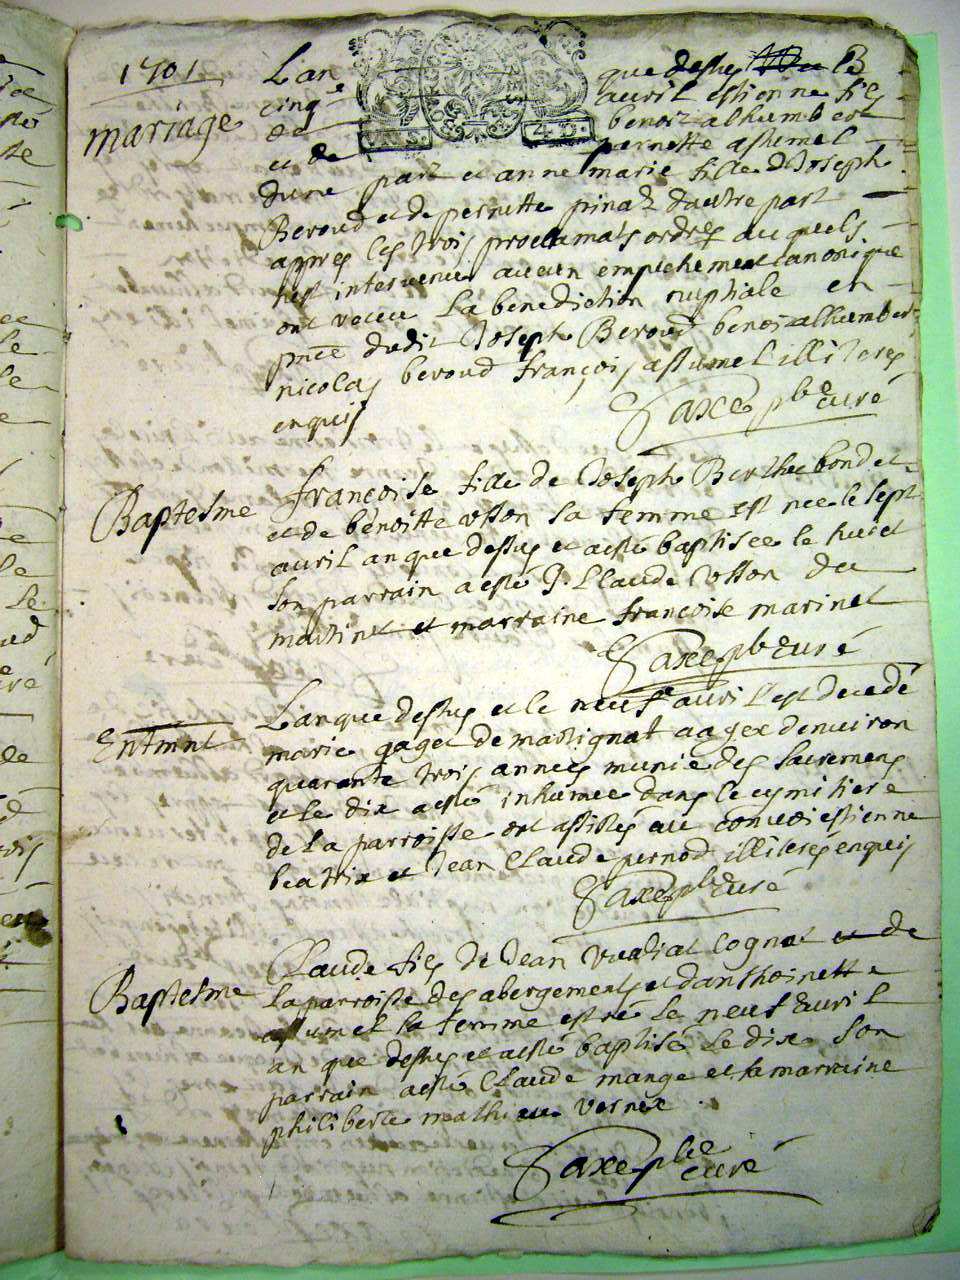 1701
mariage
Lan que dessus le
cinq avril estienne fils
de benoit alhumbert
et de pernette assumel
dune part et anne marie fille de Joseph
Beroud et de pernette pinat dautre part
appres les trois proclamats ordres auquels
nest intervenu aucun empechement canonique
ont receu la benediction nuptiale en
pnce dudit Joseph Beroud benoit alhumbert
nicolas beroud françois assumel illiteres
enquis Saxe pbre curé
Baptesme
françoise fille de Joseph Berthet bondet
et de benoitte osson sa femme est nee le sept
avril an que dessus et a esté baptisee le huict
son parrain a esté Claude osson de
martinet et marraine françoise marinet
Saxe pbre curé
Entmnt
Lan que dessus et le neuf avril est decedé
marie gaget de martignat aagee denviron
quarante trois annees munie des sacremens
et le dix a esté inhumee dans le cymitiere
de la parroisse ont assistes au convoi estienne
beatrix et Jean Claude pernod illiteres enquis
Saxe pbre curé
Baptesme
Claude fils de Jean vualiat cognat et de
la parroisse des abergements et danthoinette
assumel sa femme est né le neuf avril
an que dessus et a esté baptisé le dix son
parrain a esté Claude mange et sa marraine
philiberte mathieu vernex
Saxe pbre
curé